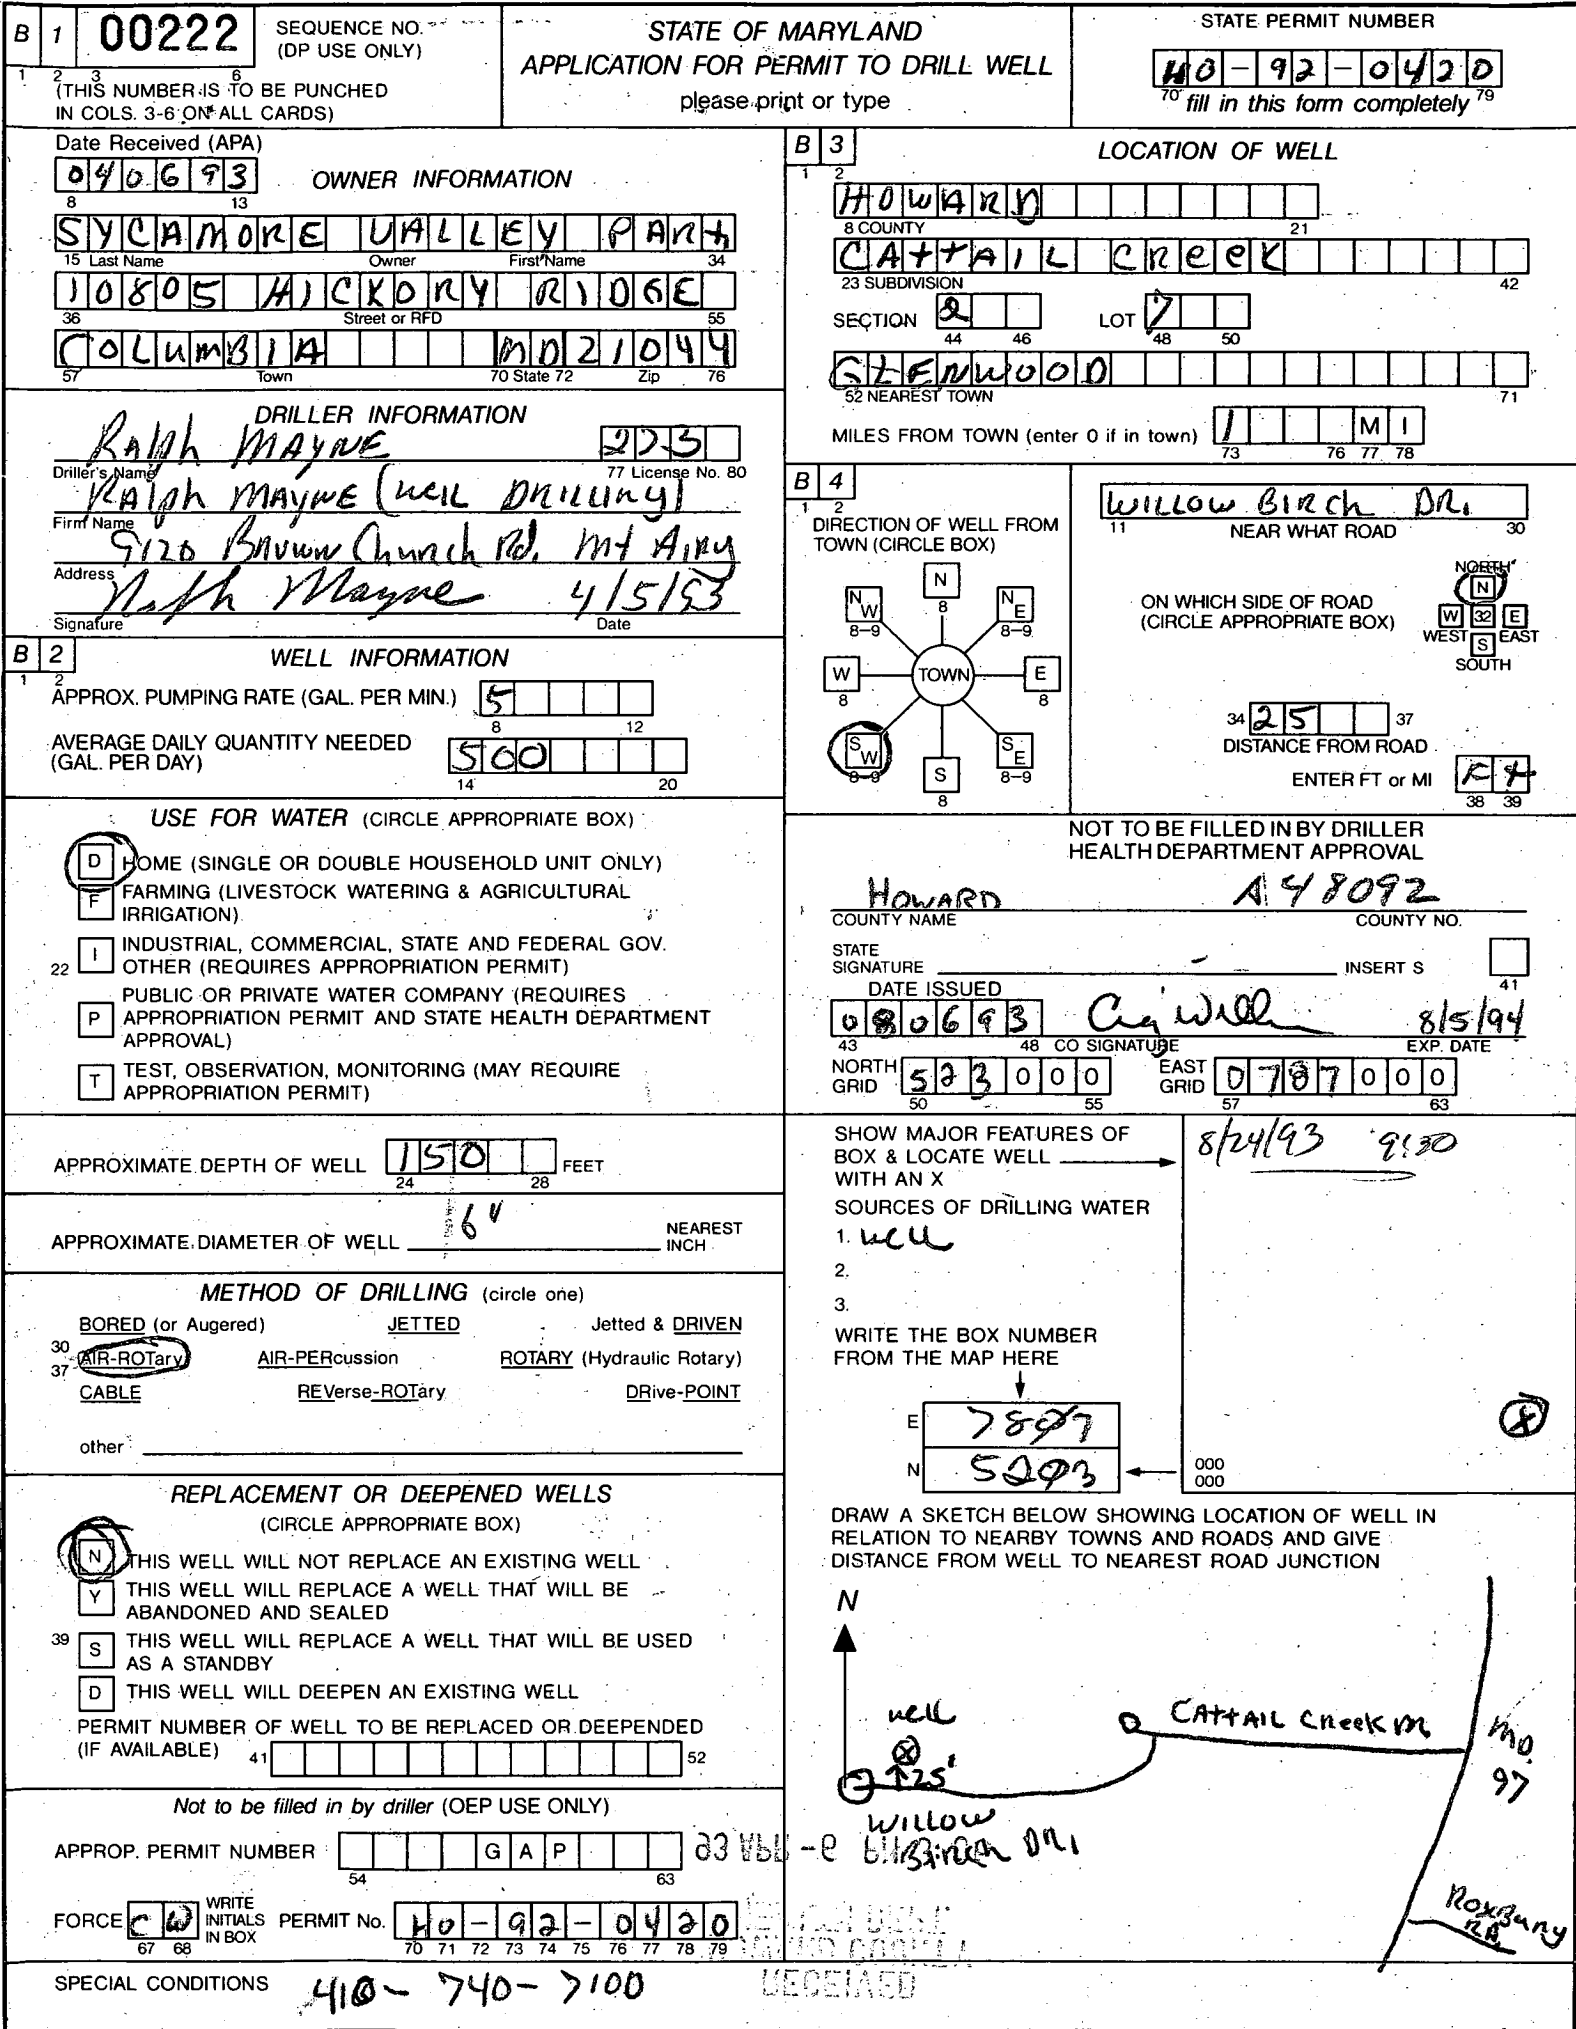 B 1 00222 SEQUENCE NO. (DP USE ONLY)
1 2 3 6
(THIS NUMBER IS TO BE PUNCHED
IN COLS. 3-6 ON ALL CARDS)
STATE OF MARYLAND
APPLICATION FOR PERMIT TO DRILL WELL
please print or type
STATE PERMIT NUMBER
HO-92-0420
70 fill in this form completely 79
Date Received (APA)
040693
8 13
OWNER INFORMATION
SYCAMORE VALLEY PART
15 Last Name Owner First Name 34
10805 HICKORY RIDGE
36 Street or RFD 55
COLUMBIA MD 21044
57 Town 70 State 72 Zip 76
DRILLER INFORMATION
Ralph MAYNE 273
Driller's Name 77 License No. 80
RAlph MAYNE (WELL DRILLING)
Firm Name
9120 Brown Church Rd. Mt AIRY
Address
Ralph Mayne 4/5/93
Signature Date
B 2 WELL INFORMATION
1 2
APPROX. PUMPING RATE (GAL. PER MIN.) 5
8 12
AVERAGE DAILY QUANTITY NEEDED
(GAL. PER DAY) 500
14 20
USE FOR WATER (CIRCLE APPROPRIATE BOX)
D HOME (SINGLE OR DOUBLE HOUSEHOLD UNIT ONLY)
F FARMING (LIVESTOCK WATERING & AGRICULTURAL
IRRIGATION)
22 I INDUSTRIAL, COMMERCIAL, STATE AND FEDERAL GOV.
OTHER (REQUIRES APPROPRIATION PERMIT)
P PUBLIC OR PRIVATE WATER COMPANY (REQUIRES
APPROPRIATION PERMIT AND STATE HEALTH DEPARTMENT
APPROVAL)
T TEST, OBSERVATION, MONITORING (MAY REQUIRE
APPROPRIATION PERMIT)
APPROXIMATE DEPTH OF WELL 150 FEET
24 28
APPROXIMATE DIAMETER OF WELL 6" NEAREST
INCH
METHOD OF DRILLING (circle one)
BORED (or Augered) JETTED Jetted & DRIVEN
30 AIR-ROTary AIR-PERcussion ROTARY (Hydraulic Rotary)
37
CABLE REVerse-ROTary DRive-POINT
other
REPLACEMENT OR DEEPENED WELLS
(CIRCLE APPROPRIATE BOX)
N THIS WELL WILL NOT REPLACE AN EXISTING WELL
Y THIS WELL WILL REPLACE A WELL THAT WILL BE
ABANDONED AND SEALED
39 S THIS WELL WILL REPLACE A WELL THAT WILL BE USED
AS A STANDBY
D THIS WELL WILL DEEPEN AN EXISTING WELL
PERMIT NUMBER OF WELL TO BE REPLACED OR DEEPENDED
(IF AVAILABLE) 41 52
Not to be filled in by driller (OEP USE ONLY)
APPROP. PERMIT NUMBER G A P
54 63
FORCE CW WRITE INITIALS IN BOX PERMIT No. HO-92-0420
67 68 70 71 72 73 74 75 76 77 78 79
SPECIAL CONDITIONS 410-740-7100
B 3 LOCATION OF WELL
1 2
HOWARD
8 COUNTY 21
CATTAIL CREEK
23 SUBDIVISION 42
SECTION 2 LOT 7
44 46 48 50
GLENWOOD
52 NEAREST TOWN 71
MILES FROM TOWN (enter 0 if in town) 1 M I
73 76 77 78
B 4
1 2
DIRECTION OF WELL FROM
TOWN (CIRCLE BOX)
N
8
NW NE
8-9 8-9
W TOWN E
8 8
SW SE
8-9 8-9
S
8
WILLOW BIRCH DR.
11 NEAR WHAT ROAD 30
ON WHICH SIDE OF ROAD
(CIRCLE APPROPRIATE BOX)
NORTH
N
W 32 E
WEST S EAST
SOUTH
34 25 37
DISTANCE FROM ROAD
ENTER FT or MI Ft
38 39
NOT TO BE FILLED IN BY DRILLER
HEALTH DEPARTMENT APPROVAL
HOWARD A 48092
COUNTY NAME COUNTY NO.
STATE
SIGNATURE INSERT S
41
DATE ISSUED
080693 8/5/94
43 48 CO SIGNATURE EXP. DATE
NORTH GRID 523000 EAST GRID 0787000
50 55 57 63
SHOW MAJOR FEATURES OF
BOX & LOCATE WELL
WITH AN X
8/24/93 9:30
SOURCES OF DRILLING WATER
1. well
2.
3.
WRITE THE BOX NUMBER
FROM THE MAP HERE
E 7807
N 5203
X
000
000
DRAW A SKETCH BELOW SHOWING LOCATION OF WELL IN
RELATION TO NEARBY TOWNS AND ROADS AND GIVE
DISTANCE FROM WELL TO NEAREST ROAD JUNCTION
N
well
25'
WILLOW
Birch DR.
CATTAIL CREEK
MD.
97
Roxbury
RD.
RECEIVED